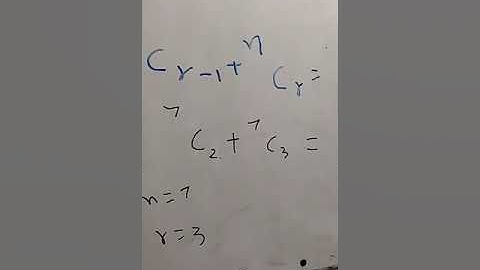 C r-1 + n C r =
7 C 2 + 7 C 3 =
n = 7
r = 3